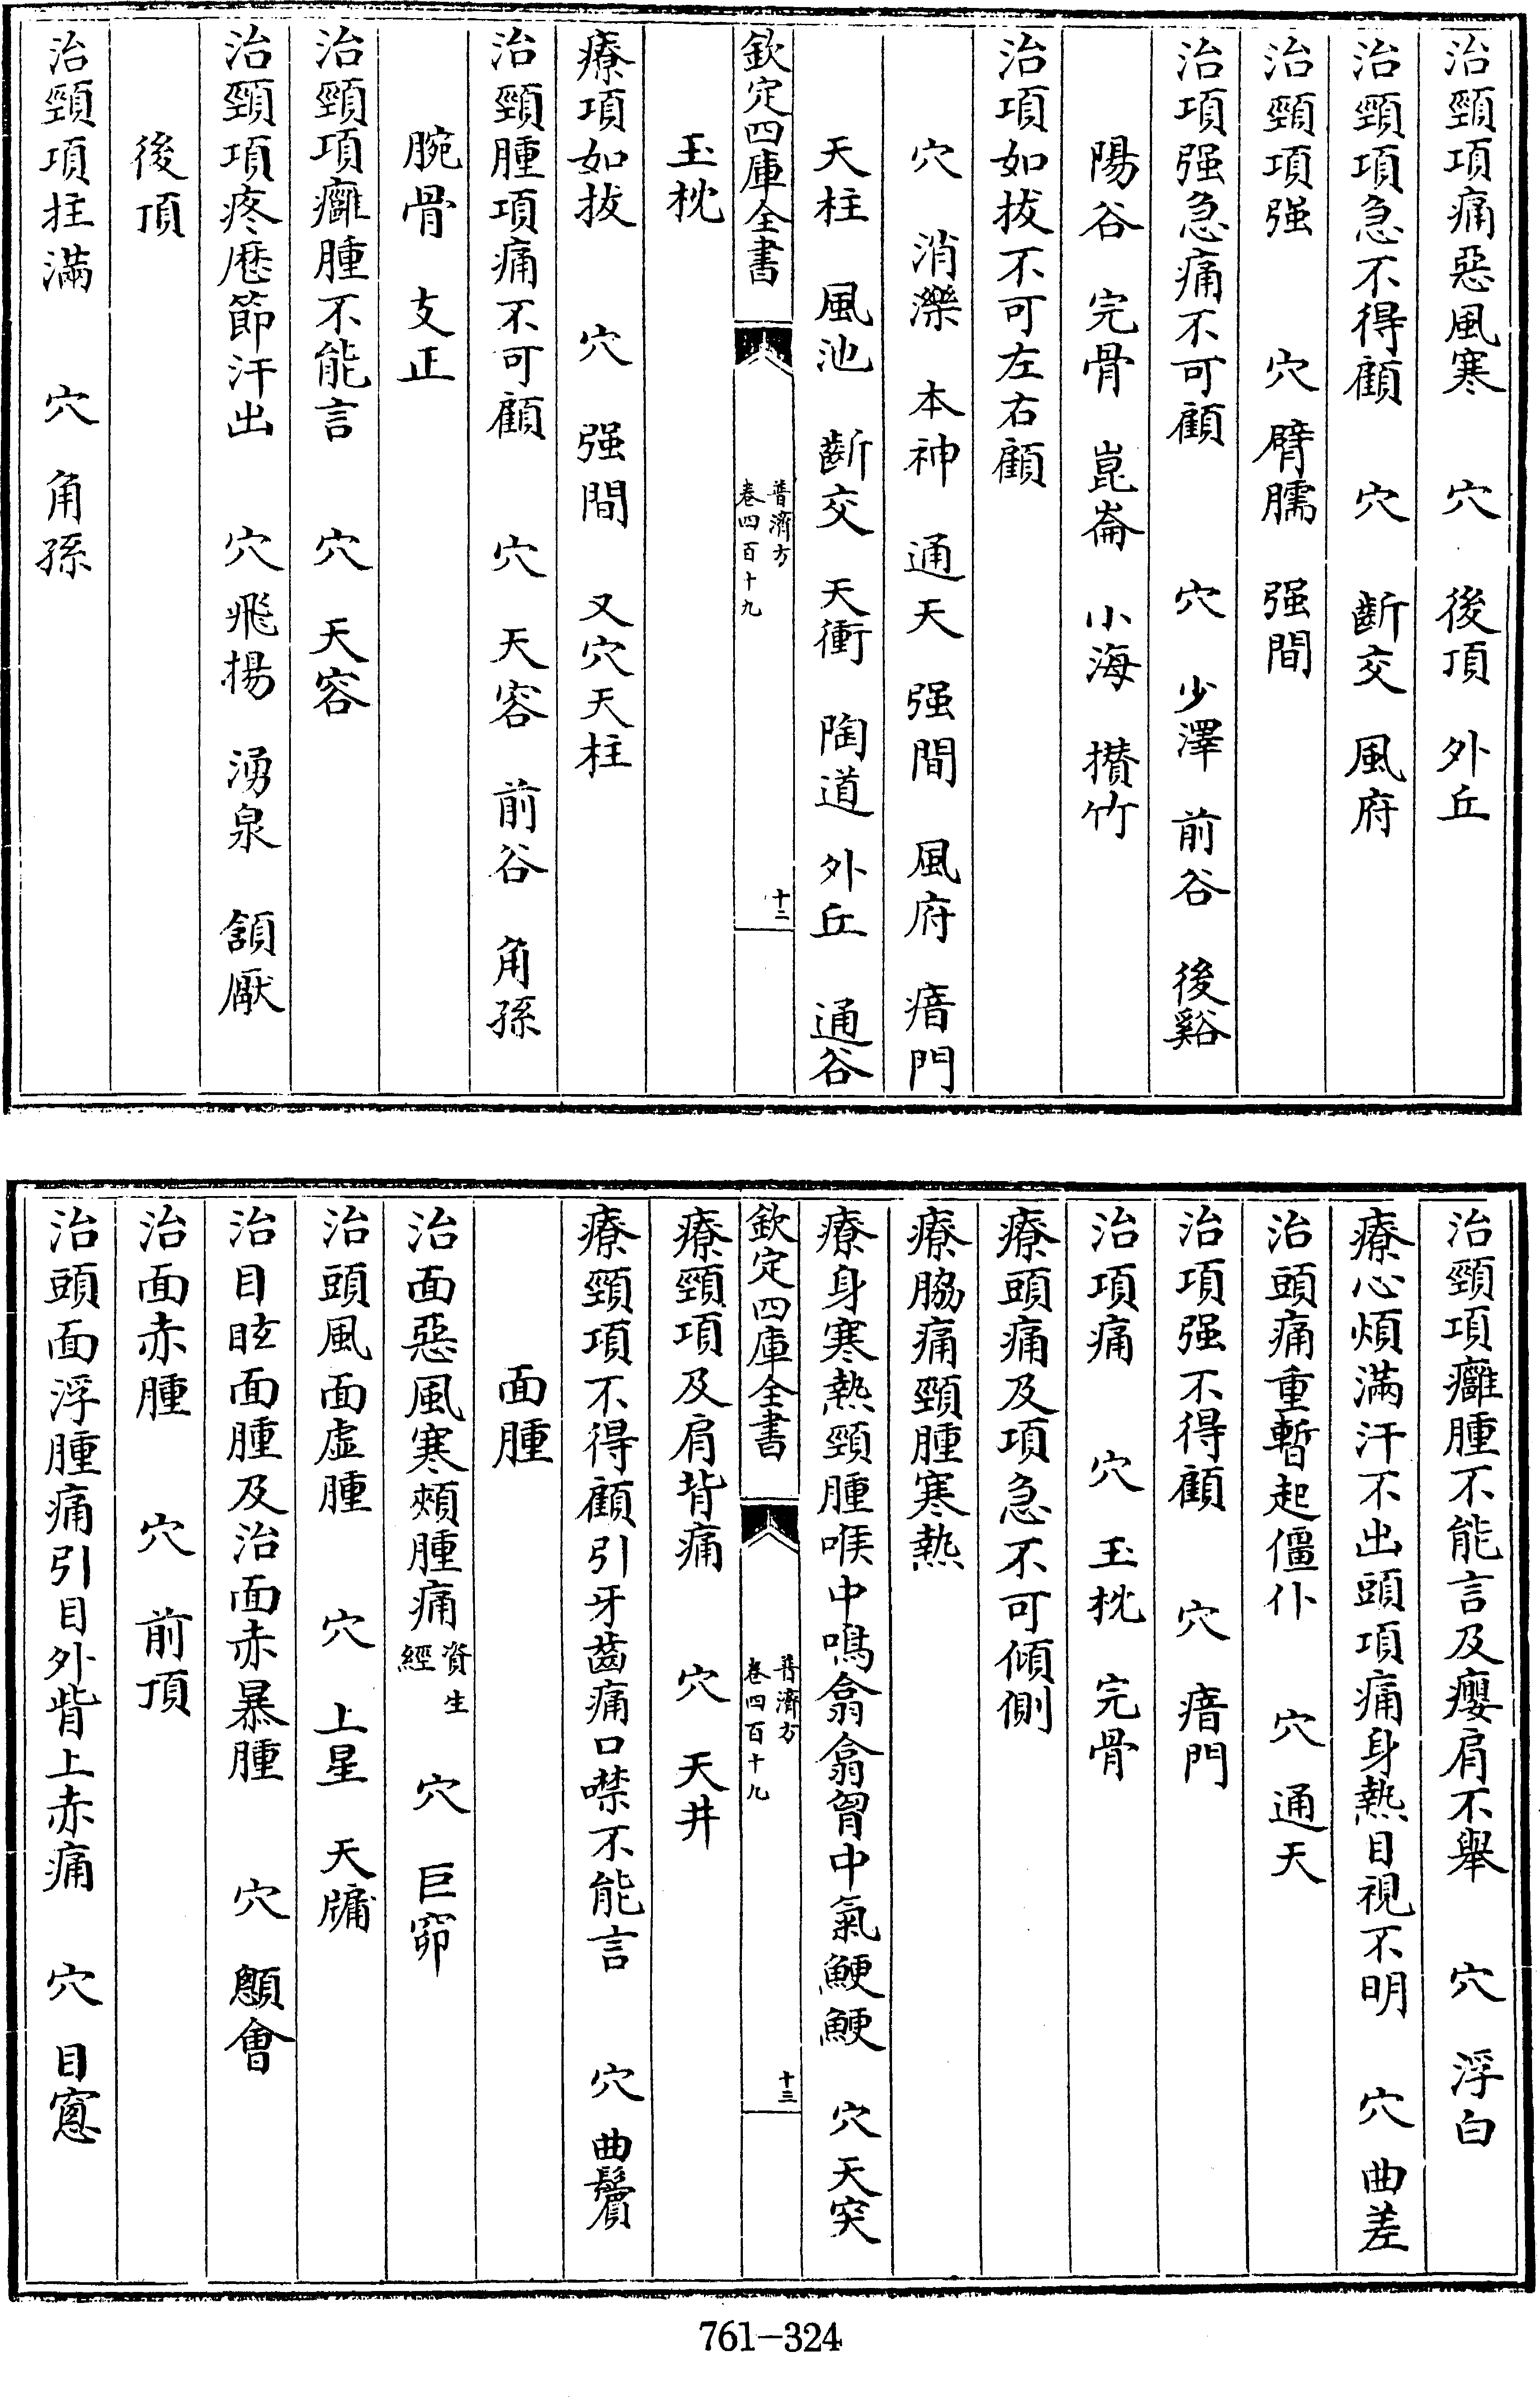 治頸項痛惡風寒　穴　後頂　外丘
治頸項急不得顧　穴　齗交　風府
治頸項强　穴　臂臑　强間
治項强急痛不可顧　穴　少澤　前谷　後谿
陽谷　完骨　崑崙　小海　攅竹
治項如拔不可左右顧
穴　消濼　本神　通天　强間　風府　瘖門
天柱　風池　齗交　天衝　陶道　外丘　通谷
欽定四庫全書　普濟方　卷四百十九　十二
玉枕
療項如拔　穴　强間　又穴天柱
治頸腫項痛不可顧　穴　天容　前谷　角孫
腕骨　支正
治頸項癰腫不能言　穴　天容
治頸項疼歴節汗出　穴　飛揚　湧泉　頷厭
後頂
治頸項拄滿　穴　角孫
治頸項癰腫不能言及癭肩不舉　穴　浮白
療心煩滿汗不出頭項痛身熱目視不明　穴　曲差
治頭痛重暫起僵仆　穴　通天
治項强不得顧　穴　瘖門
治項痛　穴　玉枕　完骨
療頭痛及項急不可傾側
療脇痛頸腫寒熱
療身寒熱頸腫喉中鳴翕翕胷中氣鯁鯁　穴　天突
欽定四庫全書　普濟方　卷四百十九　十三
療頸項及肩背痛　穴　天井
療頸項不得顧引牙齒痛口噤不能言　穴　曲鬢
面腫
治面惡風寒頰腫痛資生經　穴　巨窌
治頭風面虛腫　穴　上星　天牖
治目眩面腫及治面赤暴腫　穴　顖會
治面赤腫　穴　前頂
治頭面浮腫痛引目外眥上赤痛　穴　目窻
761-324